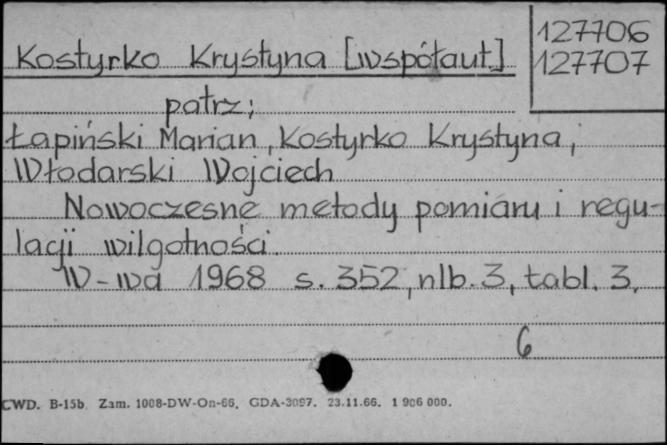 127706
Kostyrko Krystyna [współaut.] 127707
patrz;
Łapiński Marian, Kostyrko Krystyna,
Włodarski Wojciech
Nowoczesne metody pomiaru i regu-
lacji wilgotności.
W-wa 1968 s. 352, nlb. 3, tabl. 3.
6
CWD. B-15b. Zam. 1008-DW-On-66. GDA-3097. 23.11.66. 1 906 000.